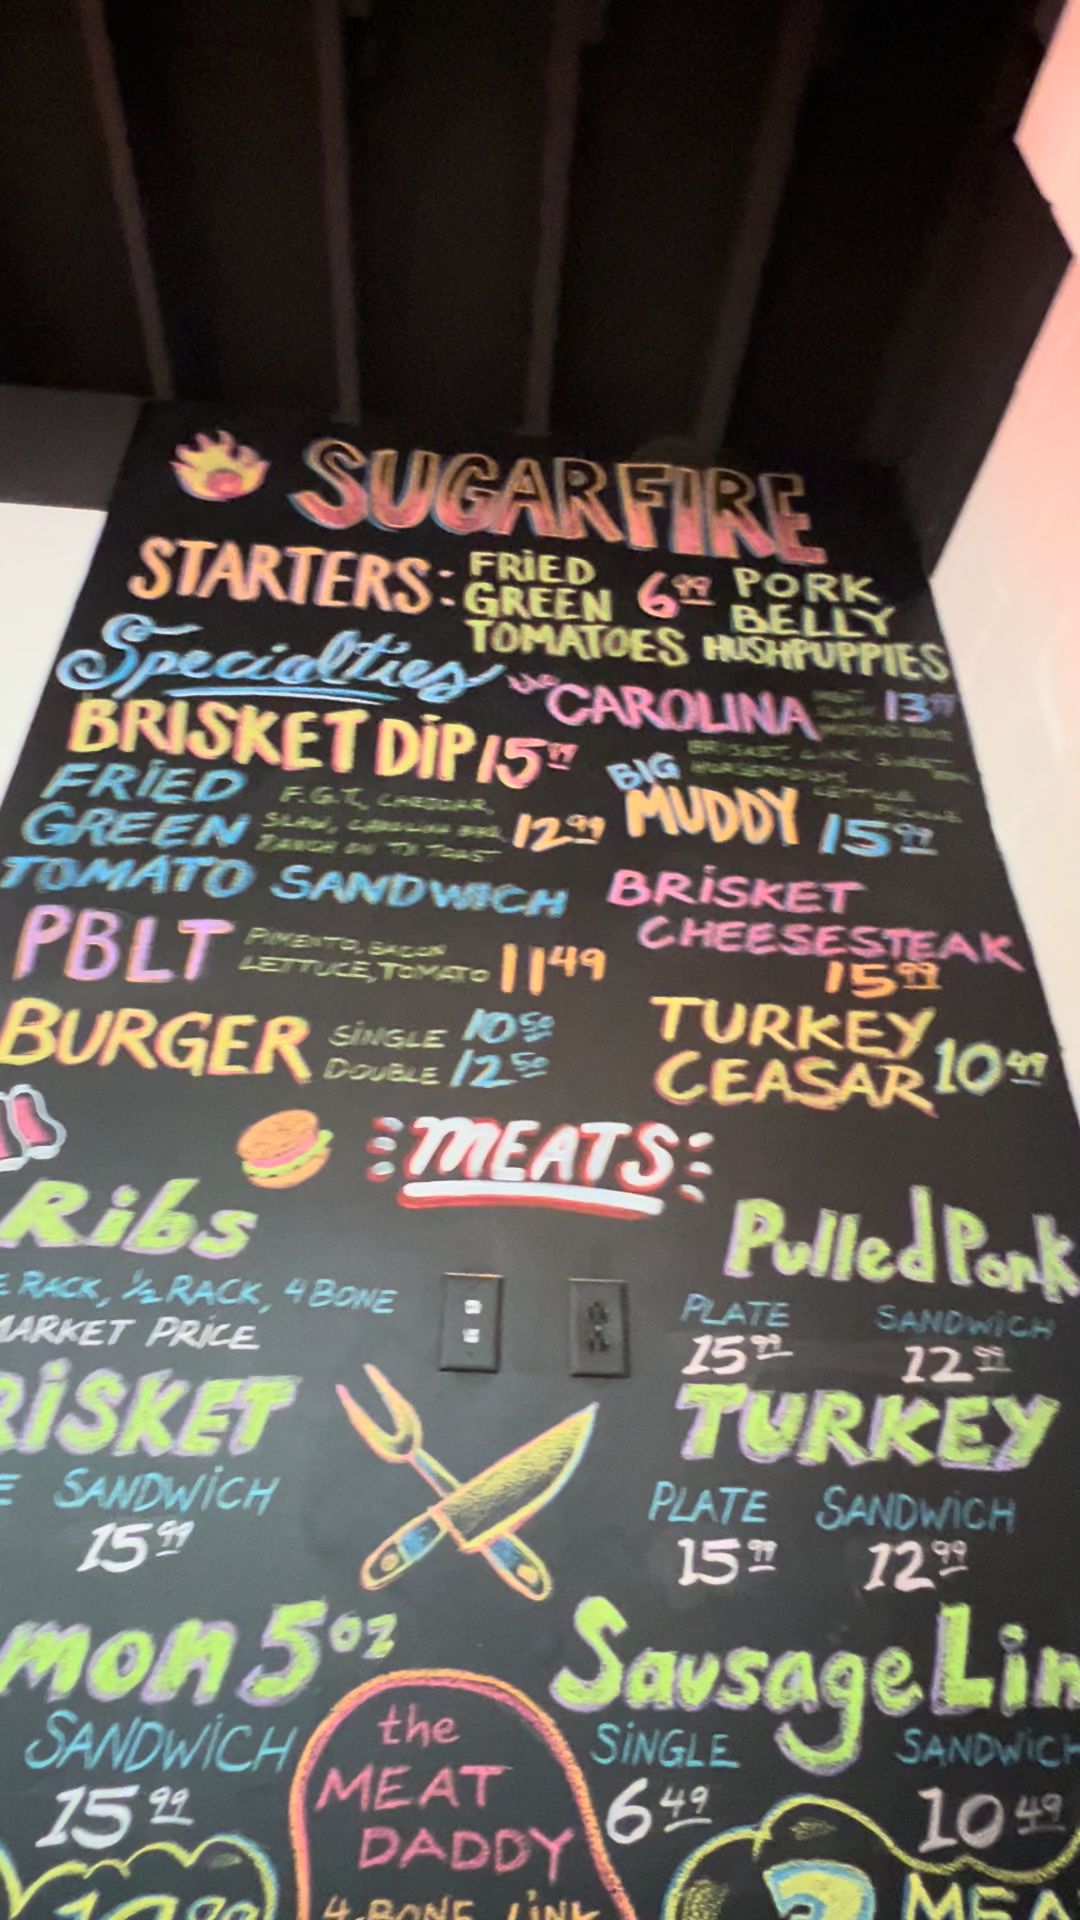 SUGARFIRE
STARTERS: FRIED GREEN TOMATOES 6.99 PORK BELLY HUSHPUPPIES
Specialties
the CAROLINA 13.99
BRISKET DIP 15.99
BIG MUDDY 15.99
BRISKET,
FRIED GREEN TOMATO SANDWICH 12.99
F.G.T., CHEDDAR,
SLAW,
RANCH ON TX TOAST
BRISKET CHEESESTEAK 15.99
PBLT 11.49
PIMENTO, BACON
LETTUCE, TOMATO
BURGER
SINGLE 10.50
DOUBLE 12.50
TURKEY CEASAR 10.49
MEATS
Ribs
RACK, ½ RACK, 4 BONE
MARKET PRICE
Pulled Pork
PLATE SANDWICH
15.99 12.99
RISKET
E SANDWICH
15.99
TURKEY
PLATE SANDWICH
15.99 12.99
mon 5 oz
SANDWICH
15.99
Sausage Lin
SINGLE SANDWICH
6.49 10.49
the
MEAT
DADDY
4-BONE, LINK
MEA